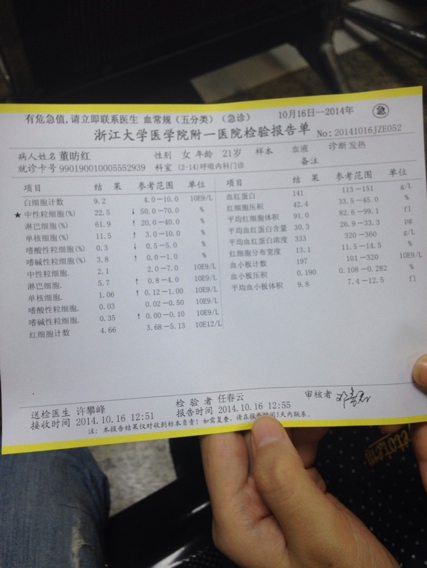 有危急值,请立即联系医生 血常规（五分类）（急诊） 10月16日--2014年 急
浙江大学医学院附一医院检验报告单 No:20141016JZE052
病人姓名 董昉红 性别 女 年龄 21岁 样本 血液 诊断 发热
就诊卡号 990190010005552939 科室 (2-14)呼吸内科门诊 备注
项目 结 果 参考范围 单位
白细胞计数 9.2 4.0-10.0 10E9/L
★ 中性粒细胞(%) 22.5 ↓ 50.0-70.0 %
淋巴细胞(%) 61.9 ↑ 20.0-40.0 %
单核细胞(%) 11.5 ↑ 3.0-10.0 %
嗜酸性粒细胞(%) 0.3 ↓ 0.5-5.0 %
嗜碱性粒细胞(%) 3.8 ↑ 0.0-1.0 %
中性粒细胞. 2.1 2.0-7.0 10E9/L
淋巴细胞. 5.7 ↑ 0.8-4.0 10E9/L
单核细胞. 1.06 ↑ 0.12-1.00 10E9/L
嗜酸性粒细胞. 0.03 0.02-0.50 10E9/L
嗜碱性粒细胞. 0.35 ↑ 0.00-0.10 10E9/L
红细胞计数 4.66 3.68-5.13 10E12/L
项目 结 果 参考范围 单位
血红蛋白 141 113-151 g/L
红细胞压积 42.4 33.5-45.0 %
平均红细胞体积 91.0 82.6-99.1 fl
平均血红蛋白含量 30.3 26.9-33.3 pg
平均血红蛋白浓度 333 320-360 g/L
红细胞分布宽度 13.1 11.5-14.5 %
血小板计数 197 101-320 10E9/L
血小板压积 0.190 0.108-0.282 %
平均血小板体积 9.8 7.4-12.5 fl
送检医生 许攀峰 检 验 者 任春云 审核者
接收时间 2014.10.16 12:51 报告时间 2014.10.16 12:55
注: 本报告结果仅对收到标本负责! 如需复查、请在
天内联系。